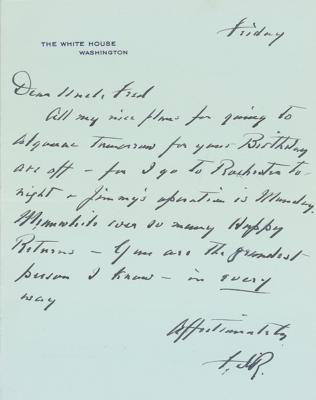 Friday
THE WHITE HOUSE
WASHINGTON
Dear Uncle Fred
All my nice plans for going to
Algonac tomorrow for your Birthday
are off – for I go to Rochester to-
night & Jimmy's operation is Monday.
Meanwhile ever so many Happy
Returns – You are the grandest
person I know – in every
way
Affectionately
F.D.R.